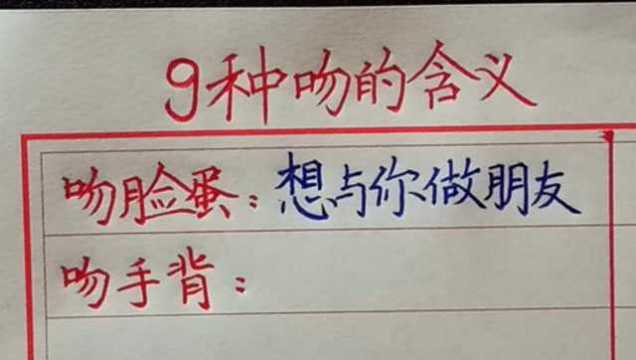 9种吻的含义
吻脸蛋：想与你做朋友
吻手背：